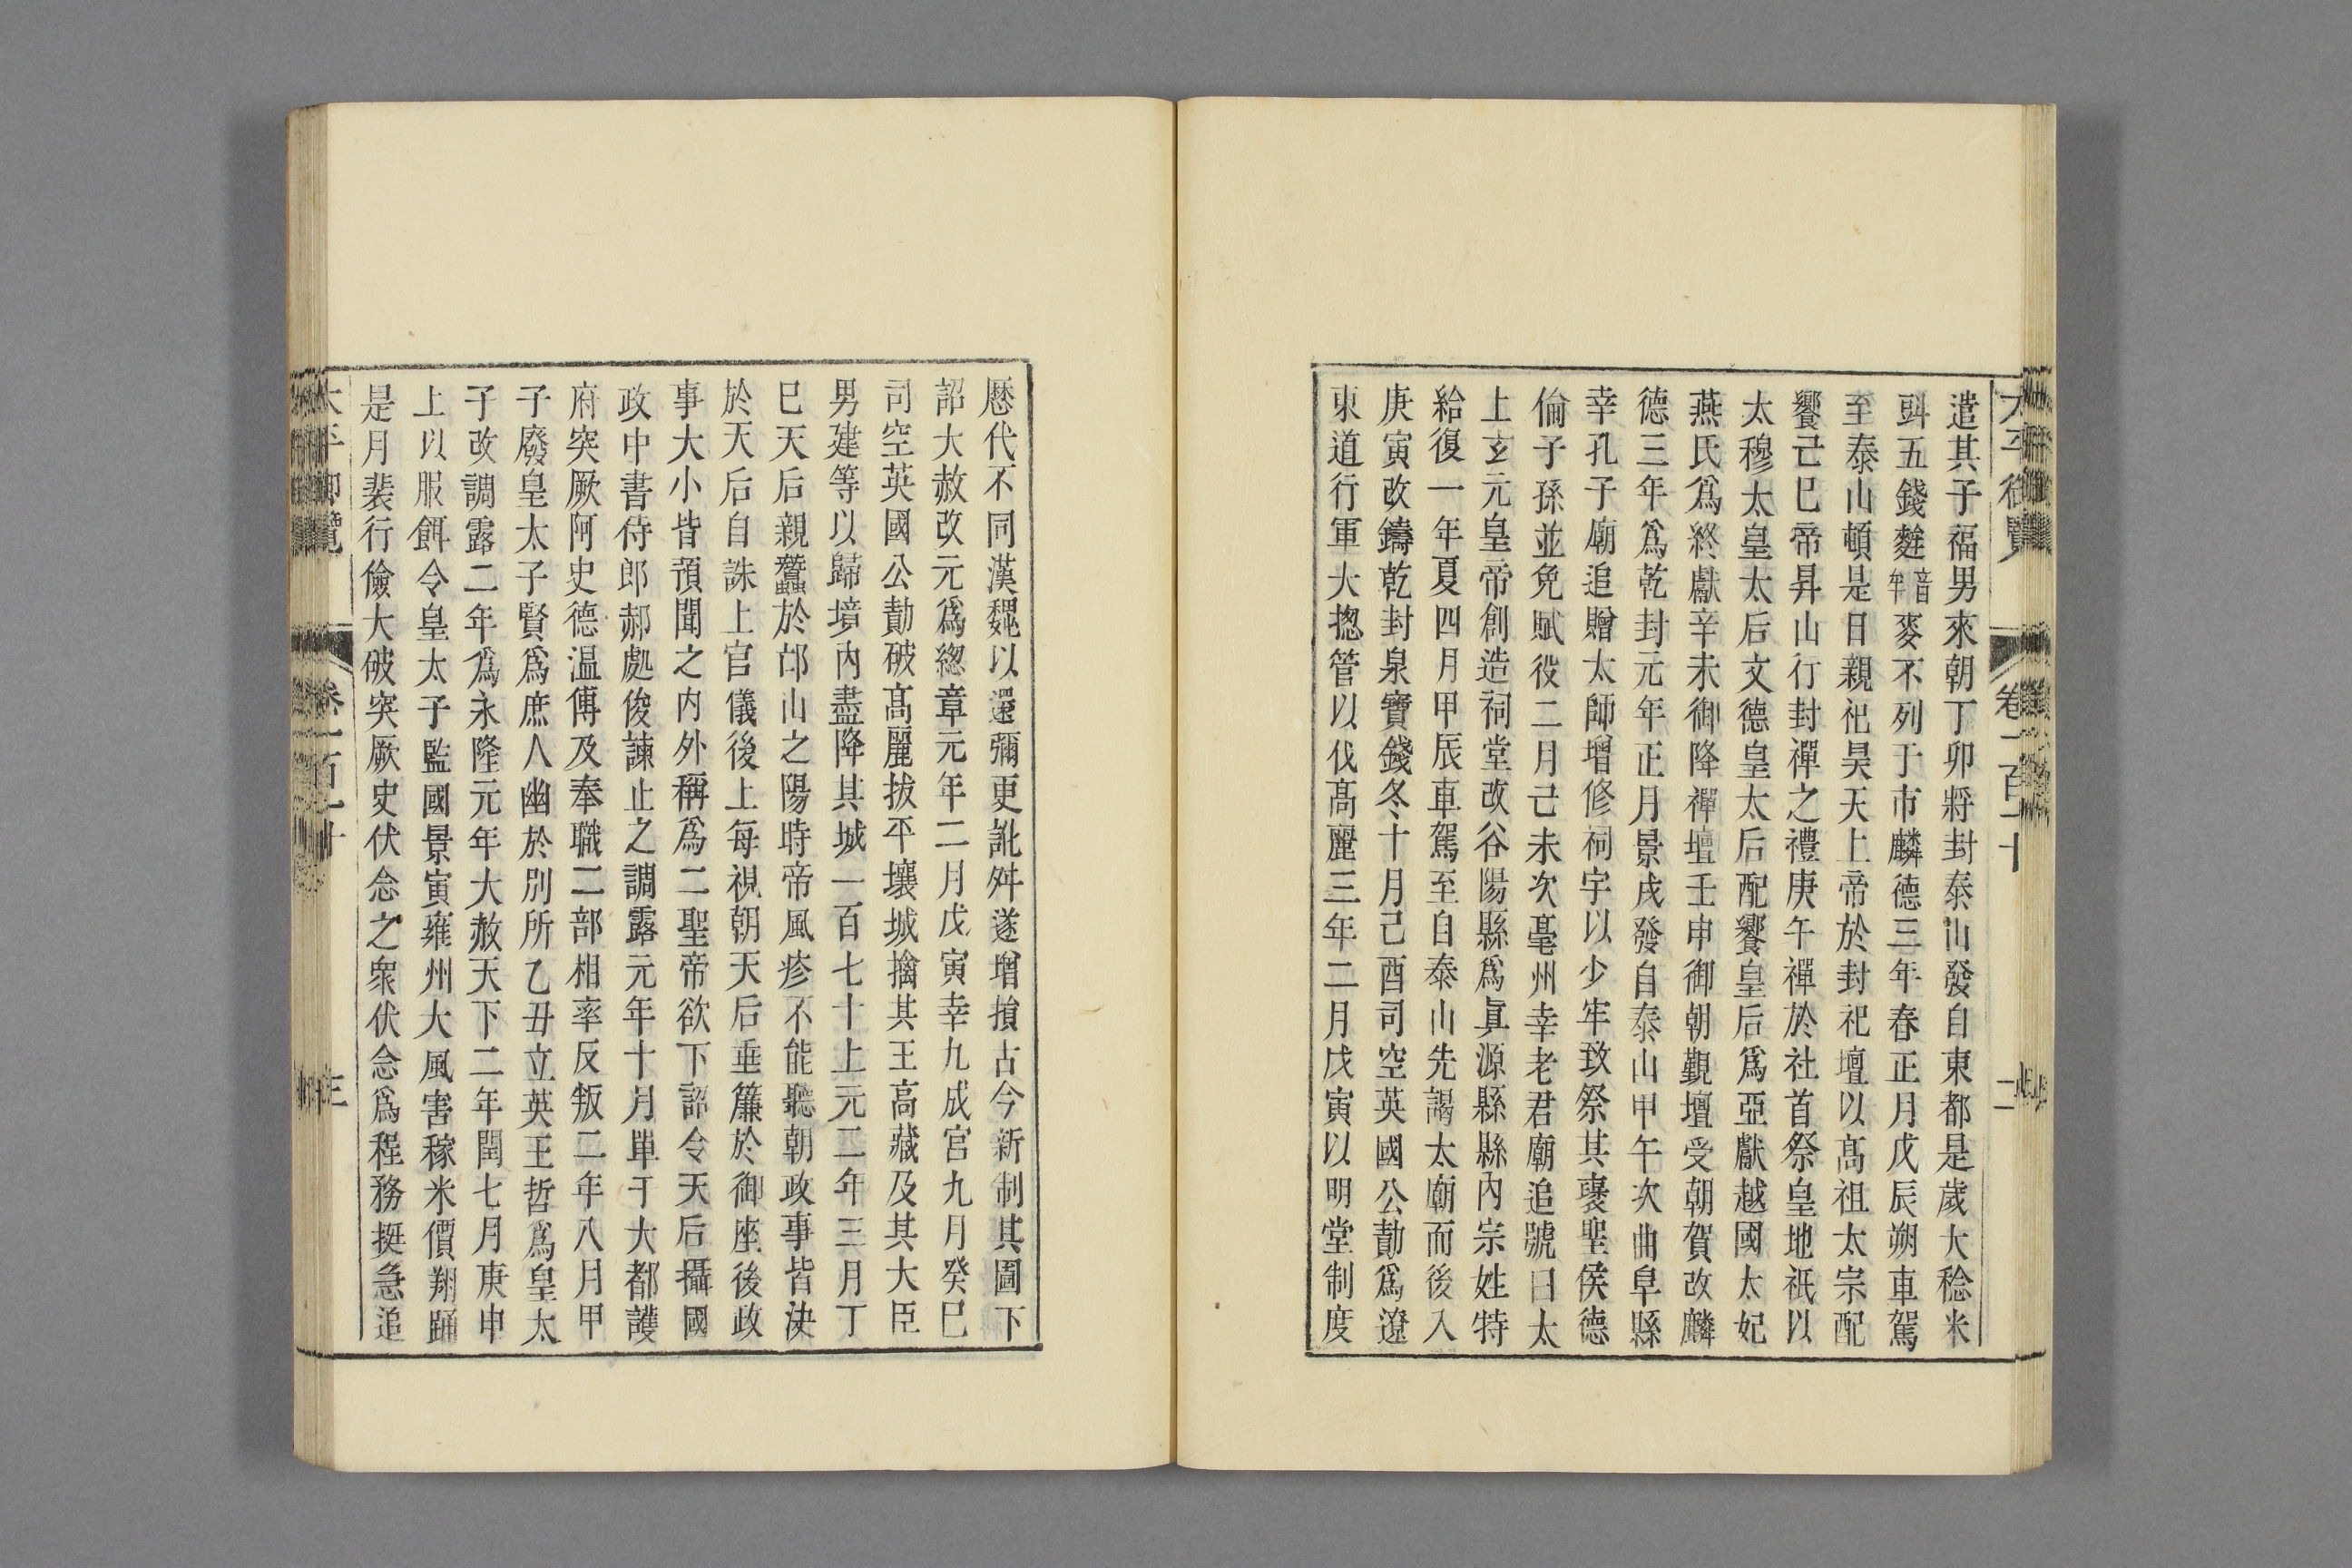 遣其子福男來朝丁卯將封泰山發自東都是歲大稔米
㪷五錢麰音牟麥不列于市麟德三年春正月戊辰朔車駕
至泰山頓是日親祀昊天上帝於封祀壇以髙祖太宗配
饗己巳帝昇山行封禪之禮庚午禪於社首祭皇地祇以
太穆太皇太后文德皇太后配饗皇后爲亞獻越國太妃
燕氏爲終獻辛未御降禪壇壬申御朝覲壇受朝賀改麟
德三年爲乾封元年正月景戌發自泰山甲午次曲阜縣
幸孔子廟追贈太師增修祠宇以少牢致祭其襃聖侯德
倫子孫並免賦役二月己未次亳州幸老君廟追號曰太
上玄元皇帝創造祠堂改谷陽縣爲眞源縣縣內宗姓特
給復一年夏四月甲辰車駕至自泰山先謁太廟而後入
庚寅改鑄乾封泉寶錢冬十月己酉司空英國公勣爲遼
東道行軍大揔管以伐髙麗三年二月戊寅以明堂制度
歷代不同漢魏以還彌更訛舛遂增損古今新制其圖下
詔大赦改元爲緫章元年二月戊寅幸九成宮九月癸巳
司空英國公勣破髙麗拔平壤城擒其王高藏及其大臣
男建等以歸墳內盡降其城一百七十上元二年三月丁
巳天后親蠶於邙山之陽時帝風疹不能聽朝政事皆決
於天后自誅上官儀後上每視朝天后垂簾於御座後政
事大小皆預聞之內外稱爲二聖帝欲下詔令天后攝國
政中書侍郎郝處俊諫止之調露元年十月單于大都護
府突厥阿史德温傅及奉職二部相率反叛二年八月甲
子廢皇太子賢爲庶人幽於別所乙丑立英王哲爲皇太
子改調露二年爲永隆元年大赦天下二年閏七月庚申
上以服餌令皇太子監國景寅雍州大風害稼米價翔踊
是月裴行儉大破突厥史伏念之衆伏念爲程務挺急追